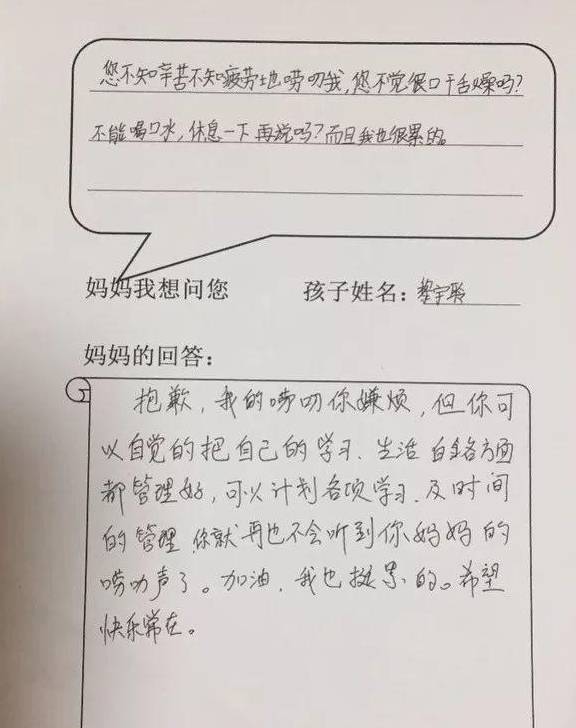 您不知辛苦不知疲劳地唠叨我,您不觉很口干舌燥吗?
不能喝口水,休息一下再说吗?而且我也很累的。
妈妈我想问您 孩子姓名:
妈妈的回答:
抱歉,我的唠叨你嫌烦,但你可
以自觉的把自己的学习、生活 各方面
都管理好,可以计划各项学习、及时间
的管理 你就再也不会听到你妈妈的
唠叨声了。加油、我也挺累的。希望
快乐常在。